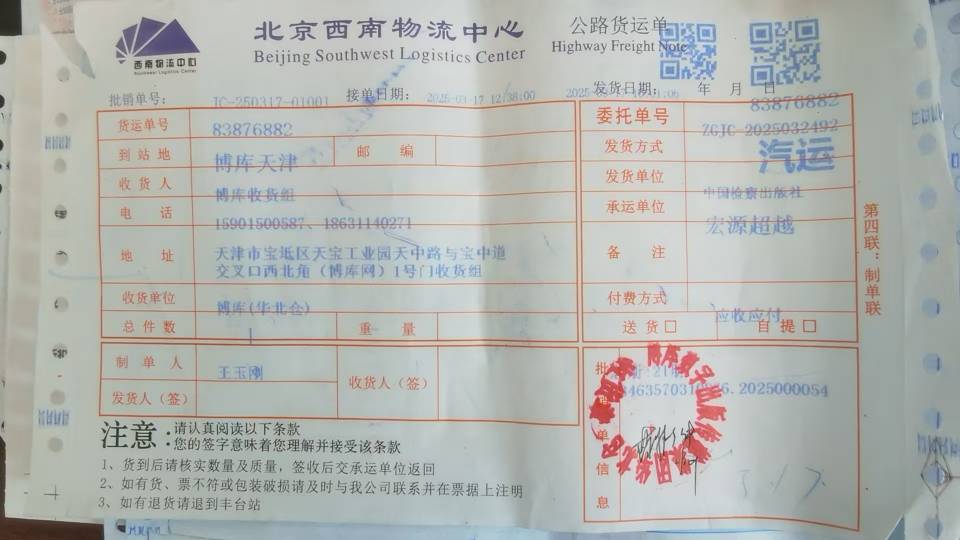 西南物流中心
Southwest Logistics Center
北京西南物流中心
Beijing Southwest Logistics Center
公路货运单
Highway Freight Note
批销单号： JC-250317-01001 接单日期： 2025-03-17 12:38:00 发货日期： 年 月 日
83876882
货运单号 83876882
到站地 博库天津 邮编
收货人 博库收货组
电话 15901500587、18631140271
地址 天津市宝坻区天宝工业园天中路与宝中道
交叉口西北角（博库网）1号门收货组
收货单位 博库(华北仓)
总件数 1 重量
委托单号 ZGJC-2025032492
发货方式 汽运
发货单位 中国检察出版社
承运单位 宏源超越
备注
付费方式 应收应付
送货☐ 自提☐
制单人 王玉刚
发货人（签）
收货人（签）
批
单
信
息
.2025000054
3.17
第四联：制单联
注意：
请认真阅读以下条款
您的签字意味着您理解并接受该条款
1、货到后请核实数量及质量，签收后交承运单位返回
2、如有货、票不符或包装破损请及时与我公司联系并在票据上注明
3、如有退货请退到丰台站